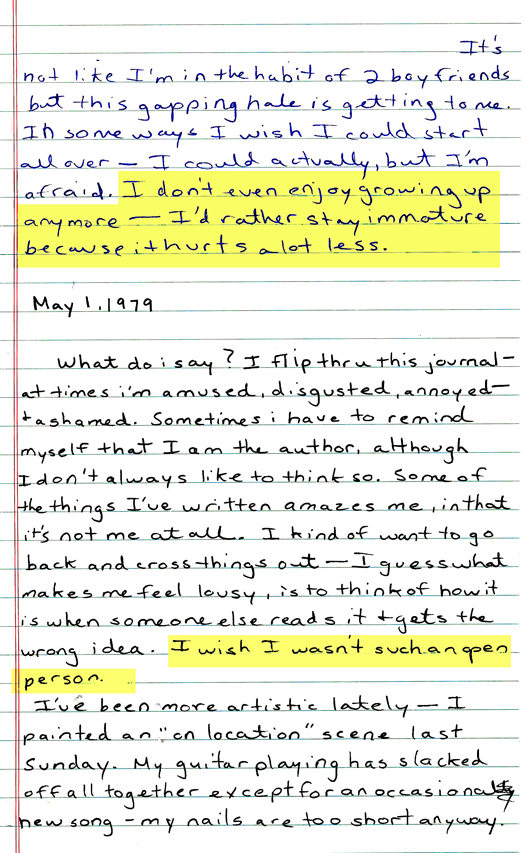 It's
not like I'm in the habit of 2 boyfriends
but this gapping hale is getting to me.
In some ways I wish I could start
all over — I could actually, but I'm
afraid. I don't even enjoy growing up
anymore — I'd rather stay immature
because it hurts a lot less.
May 1, 1979
What do i say? I flip thru this journal -
at times i'm amused, disgusted, annoyed -
+ ashamed. Sometimes i have to remind
myself that I am the author, although
I don't always like to think so. Some of
the things I've written amazes me, in that
it's not me at all. I kind of want to go
back and cross things out — I guess what
makes me feel lousy, is to think of how it
is when someone else reads it + gets the
wrong idea. I wish I wasn't such an open
person.
I've been more artistic lately — I
painted an "on location" scene last
Sunday. My guitar playing has slacked
off all together except for an occasional
new song - my nails are too short anyway.